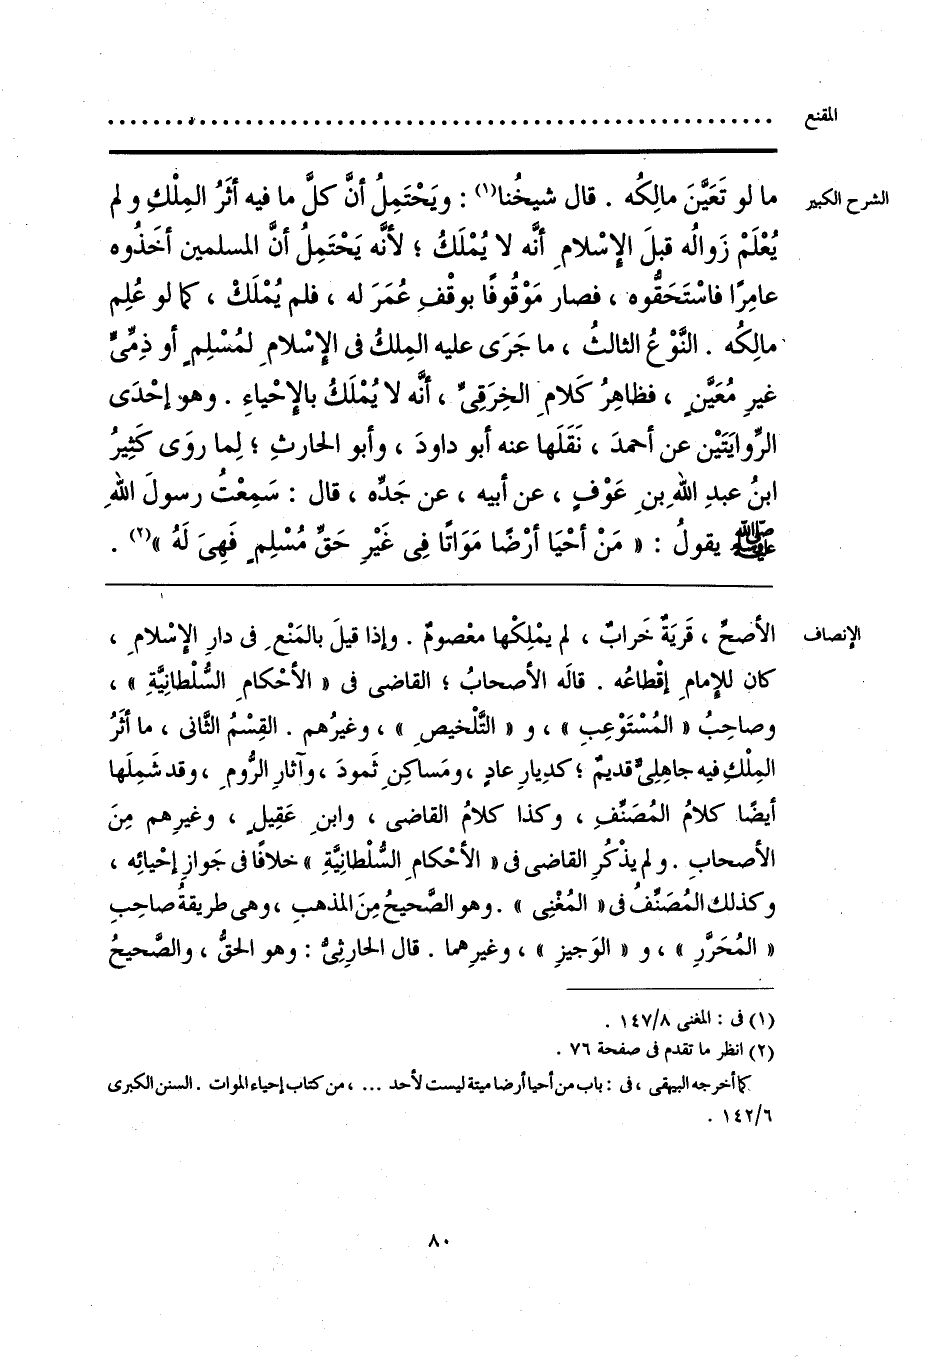 المقنع ................................................
الشرح الكبير ما لو تَعَيَّنَ مالِكُه . قال شيخُنا(١) : ويَحْتَمِلُ أنَّ كلَّ ما فيه أثَرُ المِلْكِ ولم
يُعْلَمْ زَوالُه قبلَ الإِسْلامِ أنَّه لا يُمْلَكُ ؛ لأنَّه يَحْتَمِلُ أنَّ المسلمين أخَذُوه
عامِرًا فاسْتَحَقُّوه ، فصار مَوْقُوفًا بوقْفِ عُمَرَ له ، فلم يُمْلَكْ ، كما لو عُلِم
مالِكُه . النَّوْعُ الثالثُ ، ما جَرَى عليه المِلكُ فى الإِسْلامِ لمُسْلِمٍ أو ذِمِّىٍّ
غيرِ مُعَيَّنٍ ، فظاهِرُ كَلامِ الخِرَقِىِّ ، أنَّه لا يُمْلَكُ بالإِحْياءِ . وهو إحْدَى
الرِّوايَتَيْن عن أحمدَ ، نَقَلَها عنه أبو داودَ ، وأبو الحارثِ ؛ لِما روَى كَثِيرُ
ابنُ عبدِ اللهِ بنِ عَوْفٍ ، عن أبيه ، عن جَدِّه ، قال : سَمِعْتُ رسولَ اللهِ
ﷺ يقولُ : « مَنْ أحْيَا أرْضًا مَوَاتًا فِى غَيْرِ حَقِّ مُسْلِمٍ فَهِىَ لَهُ »(٢) .
الإنصاف الأصحِّ ، قَريَةٌ خَرابٌ ، لم يمْلِكْها معْصومٌ . وإذا قيلَ بالمَنْعِ فى دارِ الإِسْلامِ ،
كان للإمامِ إقْطاعُه . قالَه الأصحابُ ؛ القاضى فى « الأحْكامِ السُّلْطانِيَّةِ » ،
وصاحِبُ « المُسْتَوْعِبِ » ، و « التَّلْخيصِ » ، وغيرُهم . القِسْمُ الثَّانى ، ما أثَرُ
المِلْكِ فيه جاهِلِىٌّ قديمٌ ؛ كدِيارِ عادٍ ، ومَساكِنِ ثَمودَ ، وآثارِ الرُّومِ ، وقد شَمِلَها
أيضًا كلامُ المُصَنِّفِ ، وكذا كلامُ القاضى ، وابنِ عَقِيلٍ ، وغيرِهم مِنَ
الأصحابِ . ولم يذْكُرِ القاضى فى « الأحْكامِ السُّلْطانِيَّةِ » خلافًا فى جَوازِ إحْيائِه ،
وكذلك المُصَنِّفُ فى « المُغْنِى » . وهو الصَّحيحُ مِنَ المذهبِ ، وهى طريقةُ صاحِبِ
« المُحَرَّرِ » ، و « الوَجيزِ » ، وغيرِهما . قال الحارثِىُّ : وهو الحَقُّ ، والصَّحيحُ
(١) فى : المغنى ١٤٧/٨ .
(٢) انظر ما تقدم فى صفحة ٧٦ .
كما أخرجه البيهقى ، فى : باب من أحيا أرضا ميتة ليست لأحد ... ، من كتاب إحياء الموات . السنن الكبرى
١٤٢/٦ .
٨٠